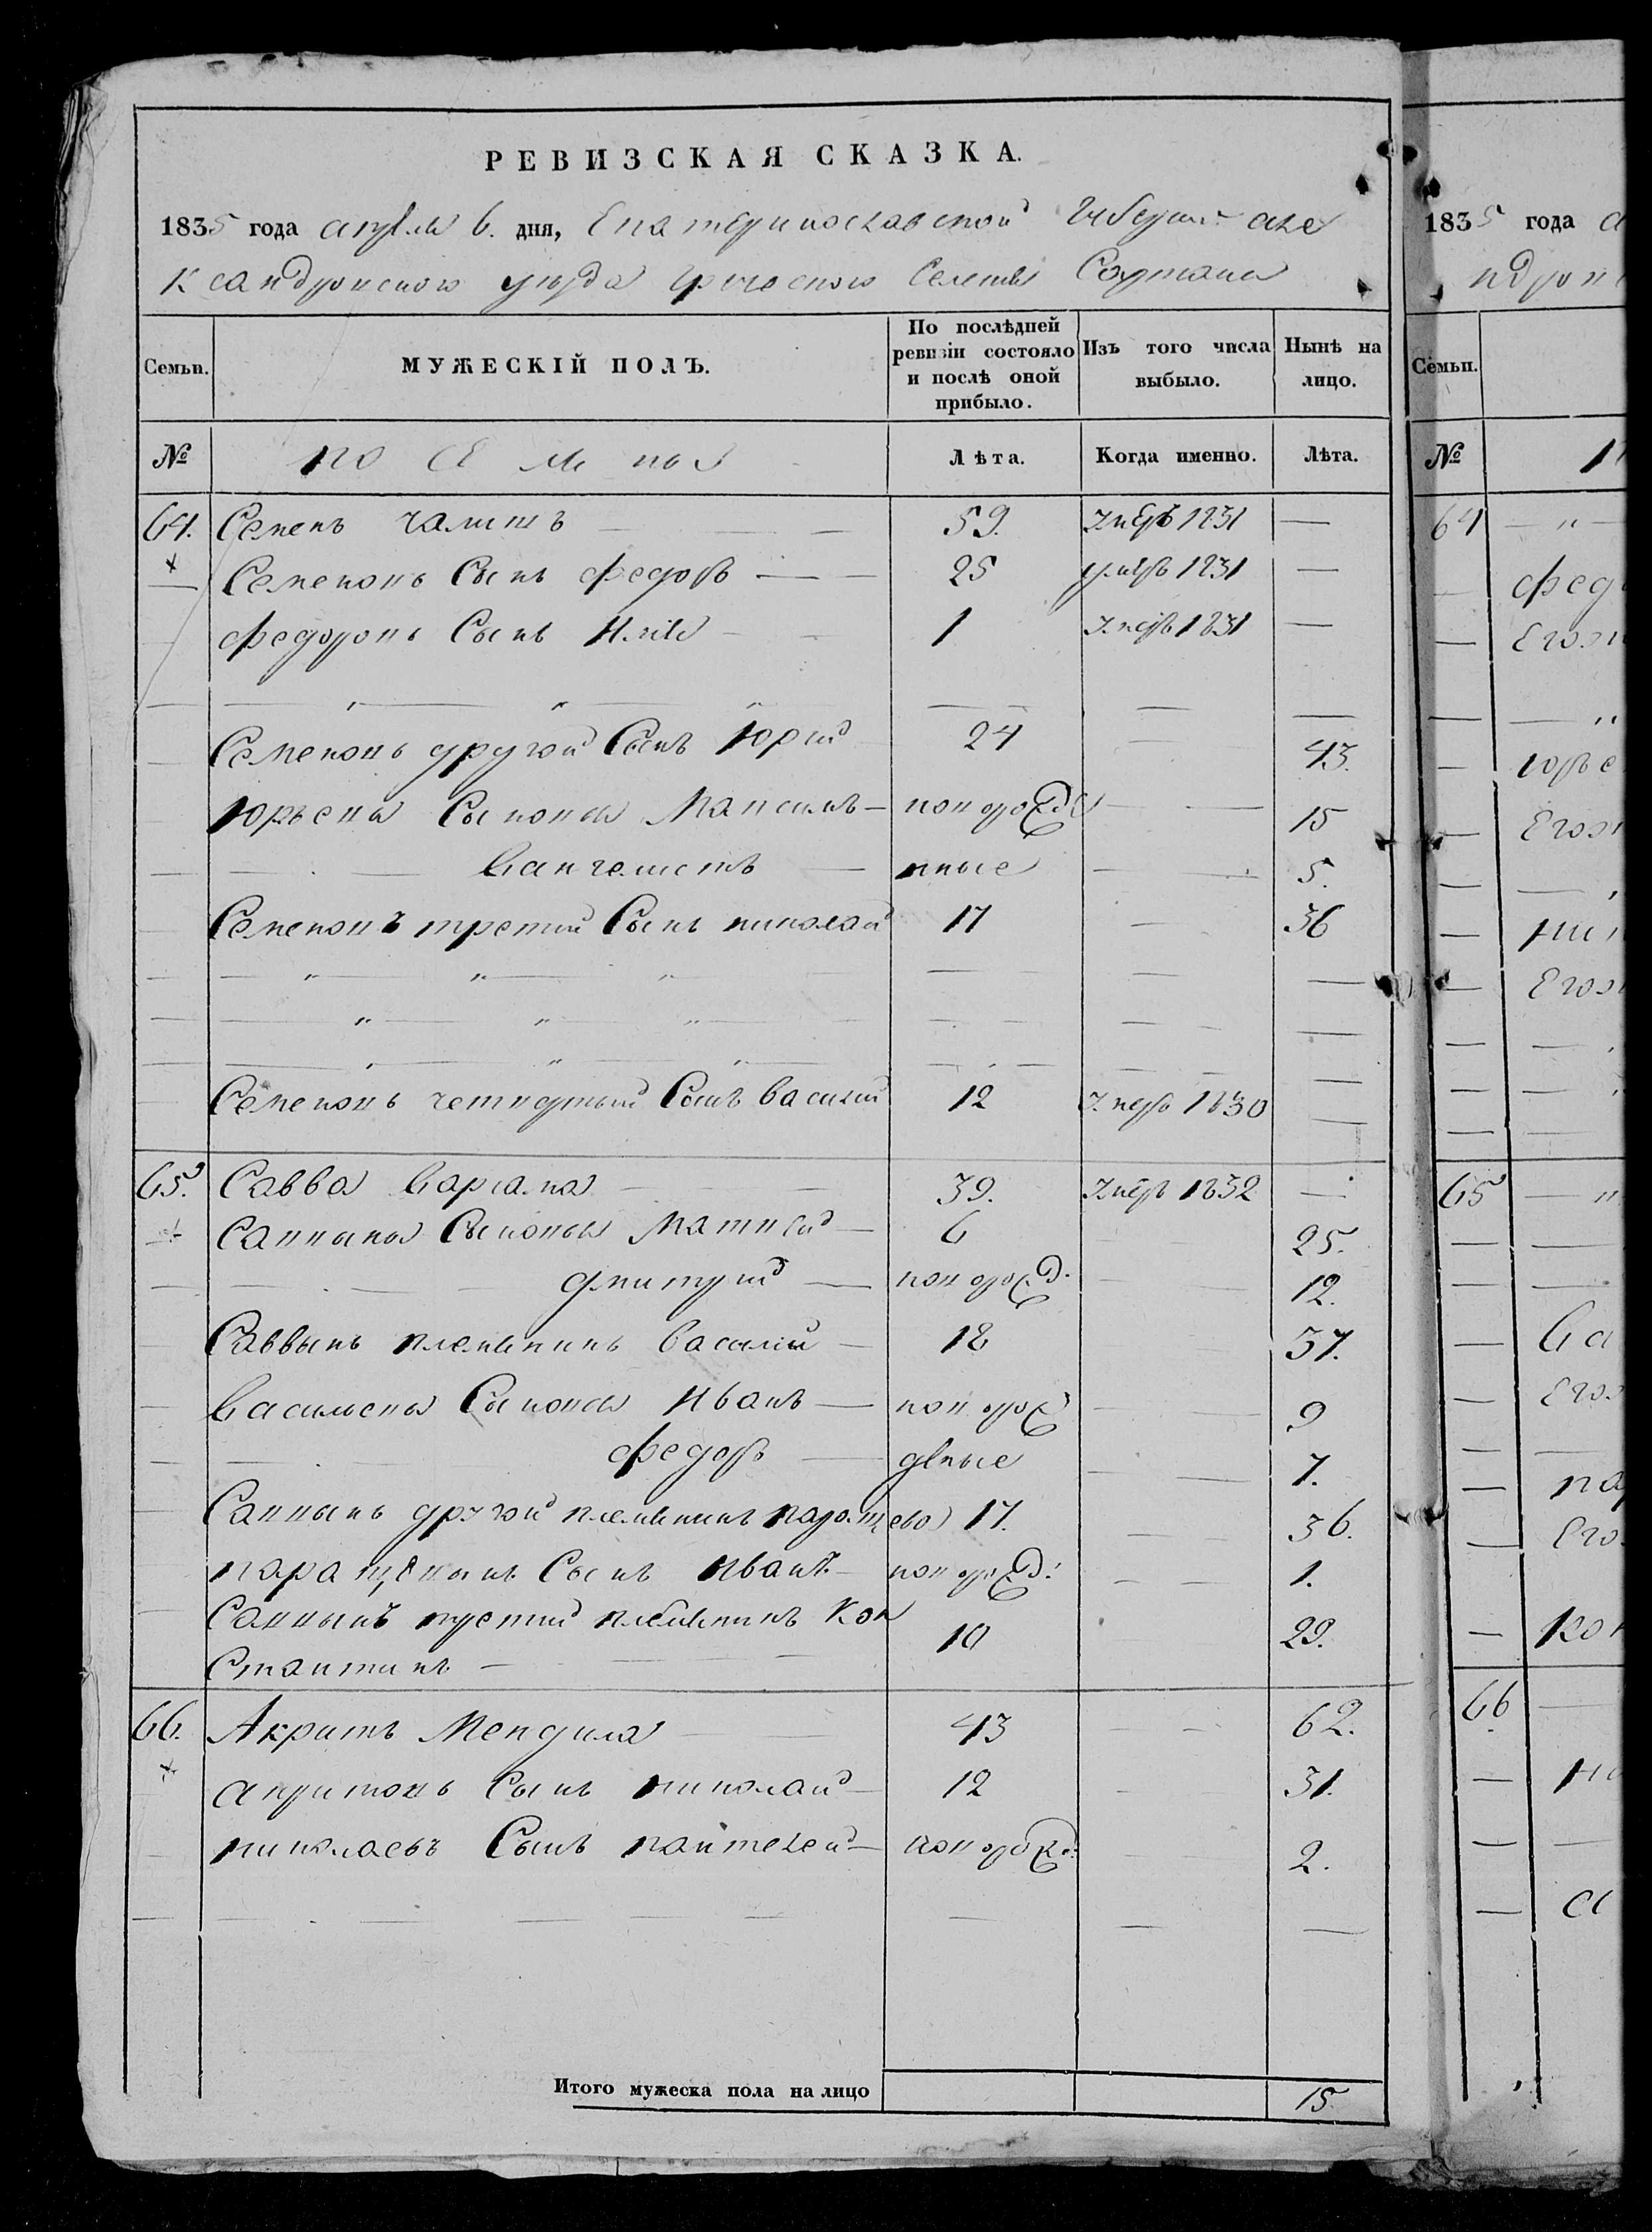 РЕВИЗСКАЯ СКАЗКА.
1835 года апреля 6. дня, Екатеринославской Губерніи Але
ксандровского уезда греческого Селенія Сартана
Семьи. МУЖЕСКІЙ ПОЛЪ. По послѣдней ревизіи состояло и послѣ оной прибыло. Изъ того числа выбыло. Нынѣ на лицо.
№ Лѣта. Когда именно. Лѣта.
64. Семенъ Чалишъ — 59. 1831 —
Семеновъ Сынъ федоръ — 25 1831 —
федоровъ Сынъ Илія — 1 1831 —
Семеновъ другой Сынъ Юрий 24 — 43.
Юрьевы Сыновья Максимъ — новорожде — 15
— Вангелистъ — нные — 5.
Семеновъ третий Сынъ николай 17 — 36
Семеновъ четвертый Сынъ василий 12 1830 —
65. Савва Варсама — 39. 1832 —
Саввины Сыновья Матвей — 6 — 25.
— дмитрий — новорожд. — 12.
Саввынъ племянникъ василий — 18 37.
васильевы Сыновья Иванъ — новорож — 9
— федоръ — денные — 7.
Саввынъ другой племянникъ паращева 17. — 36.
паращевынъ Сынъ Иванъ — новорожд: — 1.
Саввынъ третий племянникъ Кон 10 29.
стантинъ —
66. Акритъ Мендила — 43 — 62.
акритовъ Сынъ николай — 12 — 31.
николаевъ Сынъ пантелей — новорожд: — 2.
Итого мужеска пола на лицо 15.
1835 года а
ндров
Семьи.
№
64 — " —
— федо
— юрье
65
— Ва
— па
— кон
66
— ни